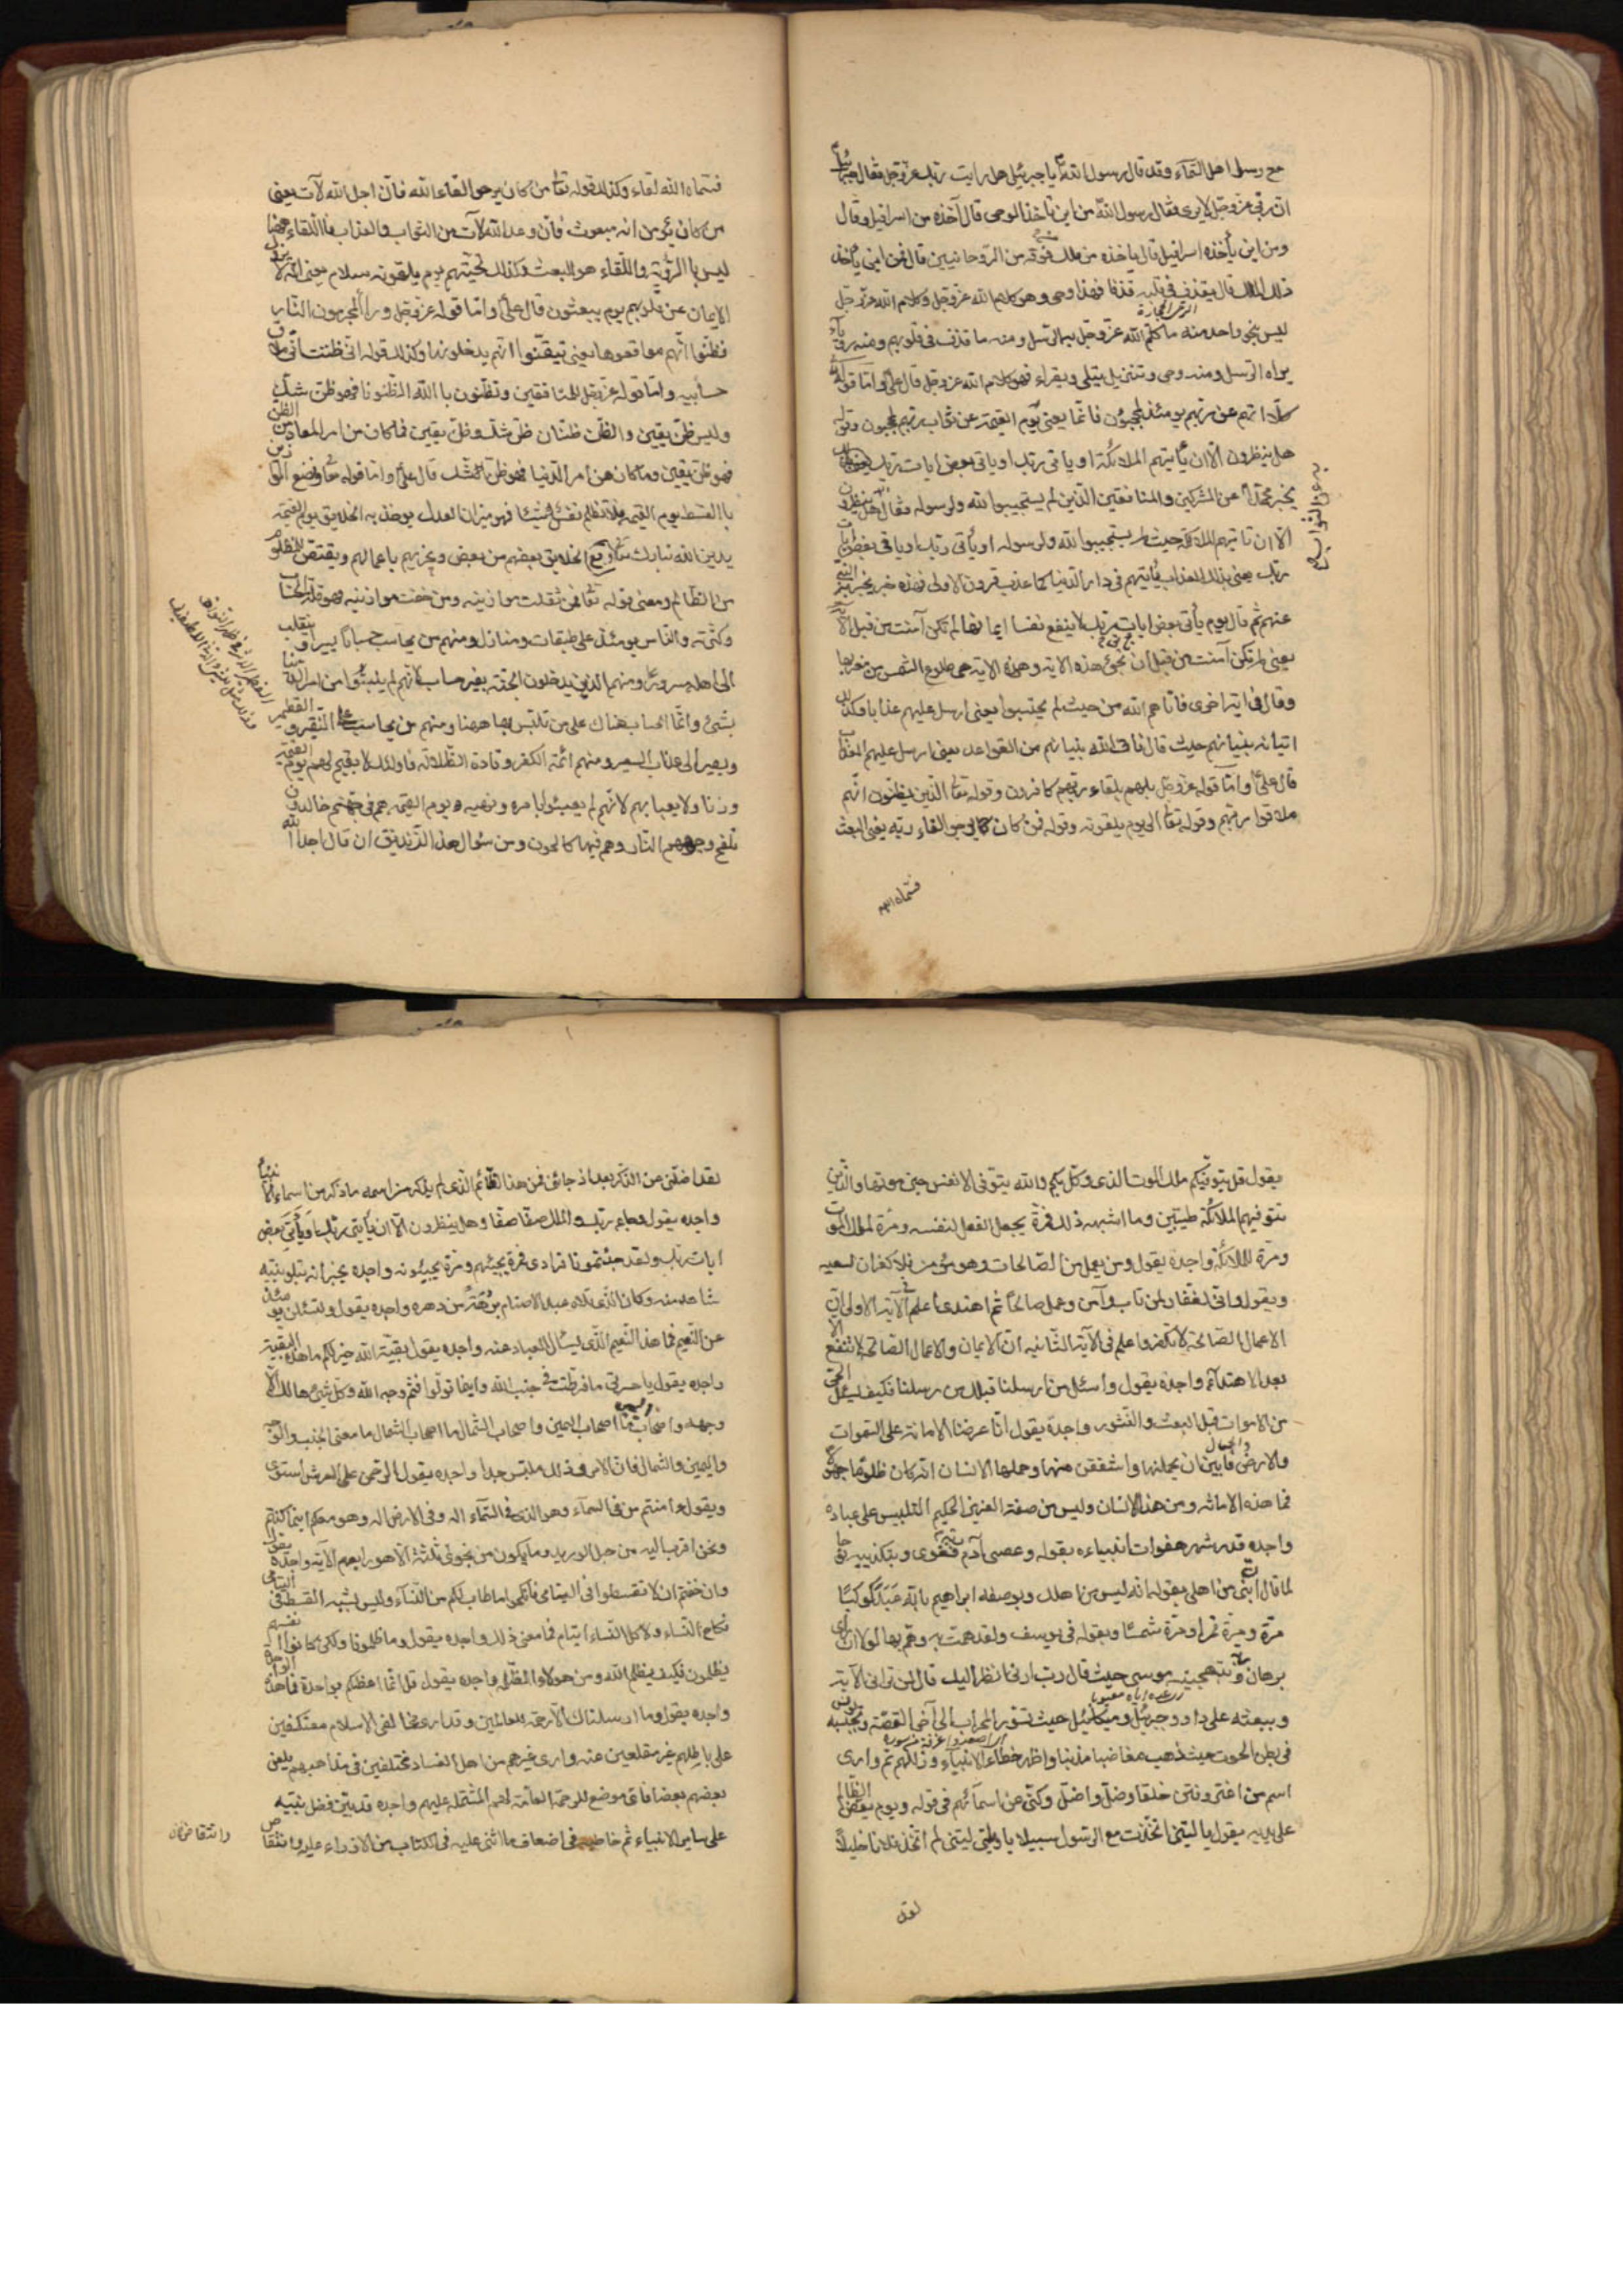 مع رسل اهل السماء وقد قال رسول الله يا جبرئيل هل رايت ربك عز وجل فقال جبرئيل
ان ربي عز وجل لا يرى فقال رسول الله من اين تاخذ الوحى قال آخذه من اسرافيل وقال
ومن اين يأخذه اسرافيل قال ياخذه من ملك فوقه من الروحانيين قال فمن اين يأخذه
ذلك الملك قال يقذف فى قلبه قذفا فهذا وحى وهو كلام الله عز وجل وكلام الله عز وجل
ليس بنحو واحد منه ما كلم الله عز وجل به الرسل ومنه ما قذف فى قلوبهم ومنه رؤيا
يراه الرسل ومنه وحى وتنزيل يتلى ويقراء فهو كلام الله عز وجل قال على واما قوله
كلا انهم عن ربهم يومئذ لمحجوبون فانما يعنى يوم القيمة عن ثواب ربهم لمحجوبون وقوله
هل ينظرون الا ان يأتيهم الملائكة او ياتى ربك او ياتى بعض ايات ربك
يخبر محمدا عن المشركين والمنافقين الذين لم يستجيبوا لله ولرسوله فقال هل ينظرون
الا ان تاتيهم الملائكة حيث لم يستجيبوا لله ولرسوله او يأتى ربك او ياتى بعض ايات
ربك يعنى بذلك العذاب يأتيهم فى دار الدنيا كما عذب قرون الاولى فهذه خبر يخبر به النبى
عنهم ثم قال يوم يأتى بعض ايات ربك لا ينفع نفسا ايمانها لم تكن آمنت من قبل الآية
يعنى لم تكن آمنت من قبل ان تجئ هذه الاية وهذه الاية هى طلوع الشمس من مغربها
وقال فى اية اخرى فاتاهم الله من حيث لم يحتسبوا يعنى ارسل عليهم عذابا وكذلك
اتيانه بنيانهم حيث قال فاتى الله بنيانهم من القواعد يعنى ارسل عليهم العذاب
قال على واما قوله عز وجل بل هم بلقاء ربهم كافرون وقوله تعا الذين يظنون انهم
ملاقوا ربهم وقوله تعا الى يوم يلقونه وقوله فمن كان يرجو القاء ربه يعنى البعث
فسماه الله
فسماه الله لقاء وكذلك قوله تعا من كان يرجو القاء الله فان اجل الله لآت يعنى
من كان يؤمن انه مبعوث فان وعد الله لآت من الثواب والعذاب فاللقاء ههنا
ليس بالرؤية واللقاء هو البعث وكذلك تحيتهم يوم يلقونه سلام يعنى انه لا يزول
الايمان عن قلوبهم يوم يبعثون قال على واما قوله عز وجل وراأ المجرمون النار
فظنوا انهم مواقعوها يعنى تيقنوا انهم يدخلونها وكذلك قوله انى ظننت انى ملاق
حسابيه واما قوله عز وجل للمنافقين وتظنون باالله الظنونا فهو ظن شك
وليس ظن يقين والظن ظنان ظن شك وظن يقين فما كان من امر المعاد من الظن
فهو ظن يقين وما كان من امر الدنيا فهو ظن شك قال على واما قوله تعا ونضع الموازين
باالقسط يوم القيمة فلا تظلم نفس شيئا فهو ميزان العدل يوخذ به الخلايق يوم القيمة
يدين الله تبارك وتعالى الخلايق بعضهم من بعض ويجزيهم باعمالهم ويقتص للمظلوم
من الظالم ومعنى قوله تعا فمن ثقلت موازينه ومن خفت موازينه فهو قلة الحساب
وكثرته والناس يومئذ على طبقات ومنازل ومنهم من يحاسب حسابا يسيرا وينقلب
الى اهله مسرورا ومنهم الذين يدخلون الجنة بغير حساب لانهم لم يلبثوا من امر الدنيا
بشئ وانما الحساب هناك على من تلبس بها ههنا ومنهم من يحاسب على النقير والقطمير
ويصير الى عذاب السعير ومنهم ائمة الكفر وقادة الضلالة فاولئك لا يقيم لهم يوم القيمة
وزنا ولا يعبا بهم لانهم لم يعبئوا بامره ونهيه ويوم القيمة هم فى جهنم خالدون
تلفح وجوههم النار وهم فيها كالحون ومن سؤال هذا الزنديق ان قال اجد الله
يقول قل يتوفيكم ملك الموت الذى وكل بكم والله يتوفى الانفس حين موتها والذين
تتوفيهم الملائكة طيبين وما اشبه ذلك فمرة يجعل الفعل لنفسه ومرة لملك الموت
ومرة للملائكة واجده يقول ومن يعمل من الصالحات وهو مؤمن فلا كفران لسعيه
ويقول وانى لغفار لمن تاب وآمن وعمل صالحا ثم اهتدى اعلم فى الآية الاولى ان
الاعمال الصالحة لا تكفر واعلم فى الآية الثانية ان الايمان والاعمال الصالحة لا تنفع الا
بعد الاهتداء واجده يقول واسئل من ارسلنا قبلك من رسلنا فكيف يسئل الحى
من الاموات قبل البعث والنشور واجده يقول انا عرضنا الامانة على السموات
والارض والجبال فابين ان يحملنها واشفقن منها وحملها الانسان انه كان ظلوما جهولا
فما هذه الامانة ومن هذا الانسان وليس من صفة العزيز الحكيم التلبيس على عباده
واجده قد شهر هفوات انبيائه بقوله وعصى آدم ربه فغوى وبتكذيبه نوحا
لما قال ابنى من اهلى بقوله انه ليس من اهلك وبوصفه ابراهيم بانه عبد كوكبا
مرة ومرة قمرا ومرة شمسا وبقوله فى يوسف ولقد همت به وهم بها لولا ان راى
برهان ربه وتهجينه موسى حيث قال رب ارنى انظر اليك قال لن ترانى الآية
وببعثه على داود وجبرئيل وميكائيل حيث تسور المحراب الى آخر القصة وبحبسه يونس
فى بطن الحوت حيث ذهب مغاضبا مذنبا واظهر خطاء الانبياء وزللهم ثم وارى
اسم من اغتر وفتن خلقا وضل واضل وكنى عن اسمائهم فى قوله ويوم يعض الظالم
على يديه يقول يا ليتنى اتخذت مع الرسول سبيلا يا ويلتى ليتنى لم اتخذ فلانا خليلا
لقد
لقد اضلنى عن الذكر بعد اذ جائنى فمن هذا الظالم الذى لم يذكر من اسمه ما ذكر من اسماء الانبياء
واجده يقول وجاء ربك والملك صفا صفا وهل ينظرون الا ان يأتى ربك او يأتى بعض
ايات ربك ولقد جئتمونا فرادى فمرة يجيئهم ومرة يجيئونه واجده يخبر انه يتلو نبيه
شاهد منه وكان الذى تلاه عبد الاصنام برهة من دهره واجده يقول ولتسئلن يومئذ
عن النعيم فما هذا النعيم الذى يسئال العباد عنه واجده يقول بقية الله خير لكم ما هذه البقية
واجده يقول يا حسرتى ما فرطت فى جنب الله واينما تولوا فثم وجه الله وكل شئ هالك الا
وجهه واصحاب اليمين ما اصحاب اليمين واصحاب الشمال ما اصحاب الشمال ما معنى الجنب والوجه
واليمين والشمال فان الامر فى ذلك ملتبس جدا واجده يقول الرحمن على العرش استوى
ويقول ءامنتم من فى السماء وهو الذى فى السماء اله وفى الارض اله وهو معكم اينما كنتم
ونحن اقرب اليه من حبل الوريد وما يكون من نجوى ثلثة الا هو رابعهم الآية واجده يقول
وان خفتم ان لا تقسطوا فى اليتامى فانكحوا ما طاب لكم من النساء وليس يشبه القسط فى اليتامى
نكاح النساء ولا كل النساء ايتام فما معنى ذلك واجده يقول وما ظلمونا ولكن كانوا انفسهم
يظلمون فكيف يظلم الله ومن هولاء الظلمة واجده يقول قل انما اعظكم بواحدة فما هذه الواحدة
واجده يقول وما ارسلناك الا رحمة للعالمين وقد ارى مخالفى الاسلام معتكفين
على باطلهم غير مقلعين عنه وارى غيرهم من اهل الفساد مختلفين فى مذاهبهم يلعن
بعضهم بعضا فاى موضع للرحمة العامة لهم المشتملة عليهم واجده قد بين فضل نبيه
على ساير الانبياء ثم خاطبه فى اضعاف ما اثنى عليه فى الكتاب من الازراء عليه وانتقاص